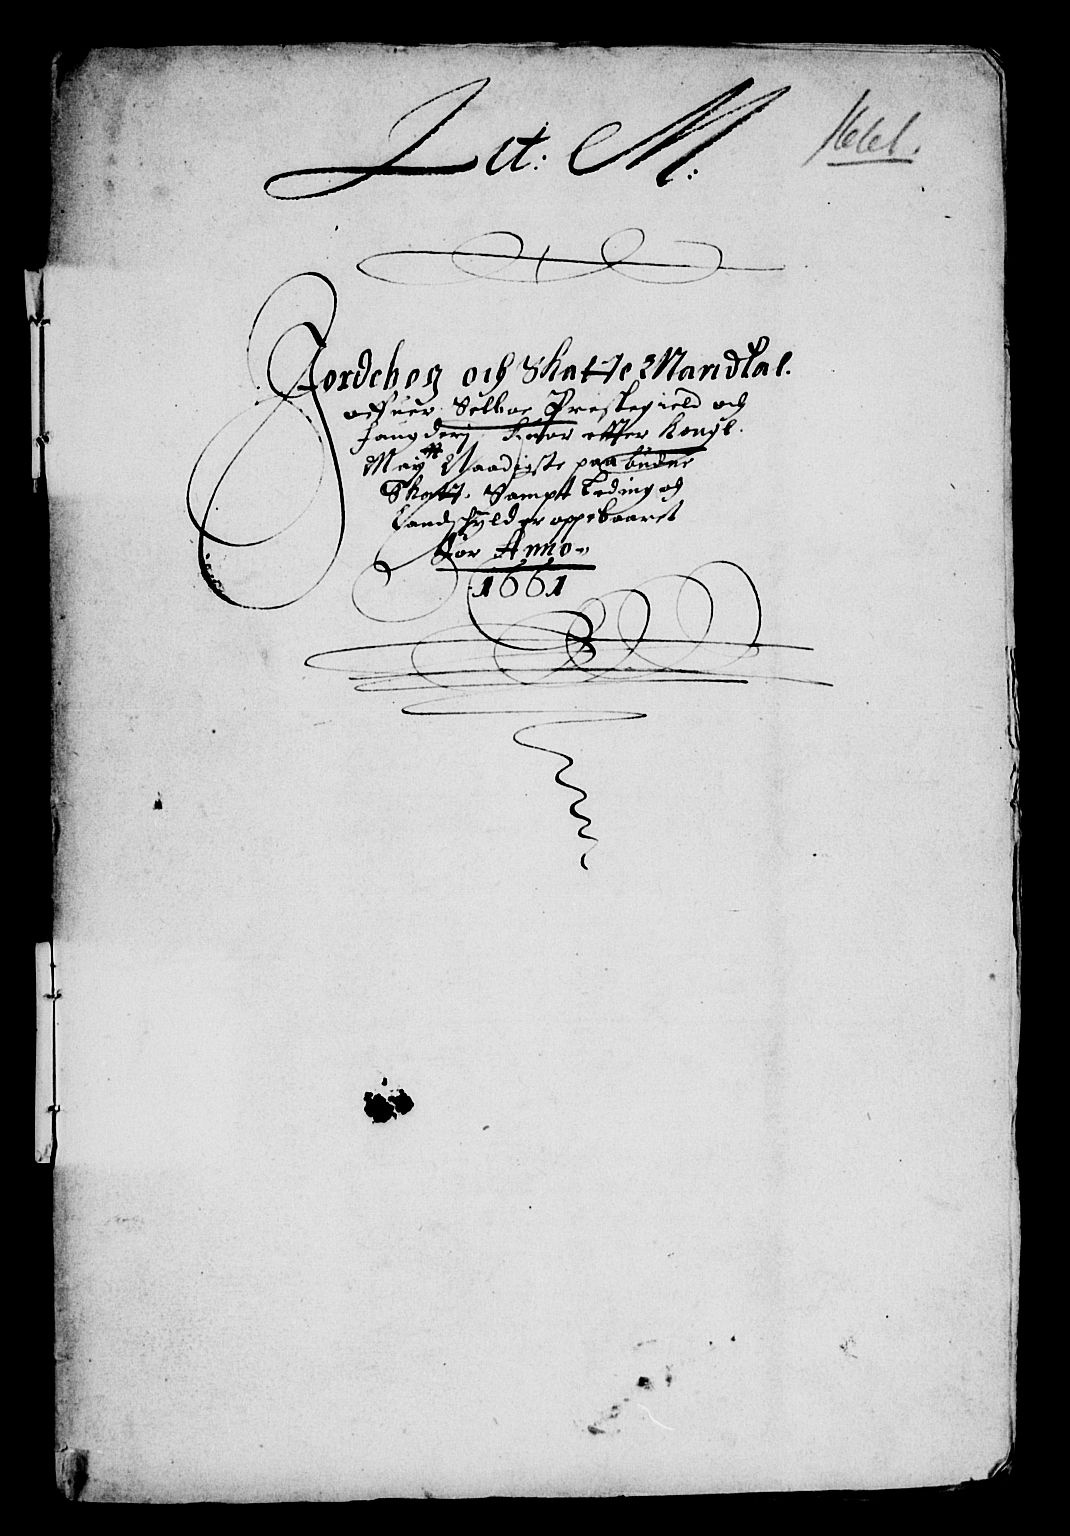 Lit: M:
1661.
Jordebog och Skatte Mandtal.
offuer Selboe Præstegield och
Fougderj, huor effter Kongl.
May:tt Naadigste paabudne
Skatt, Sampt Leding og
Landschyld er oppebaaret
for Anno
1661